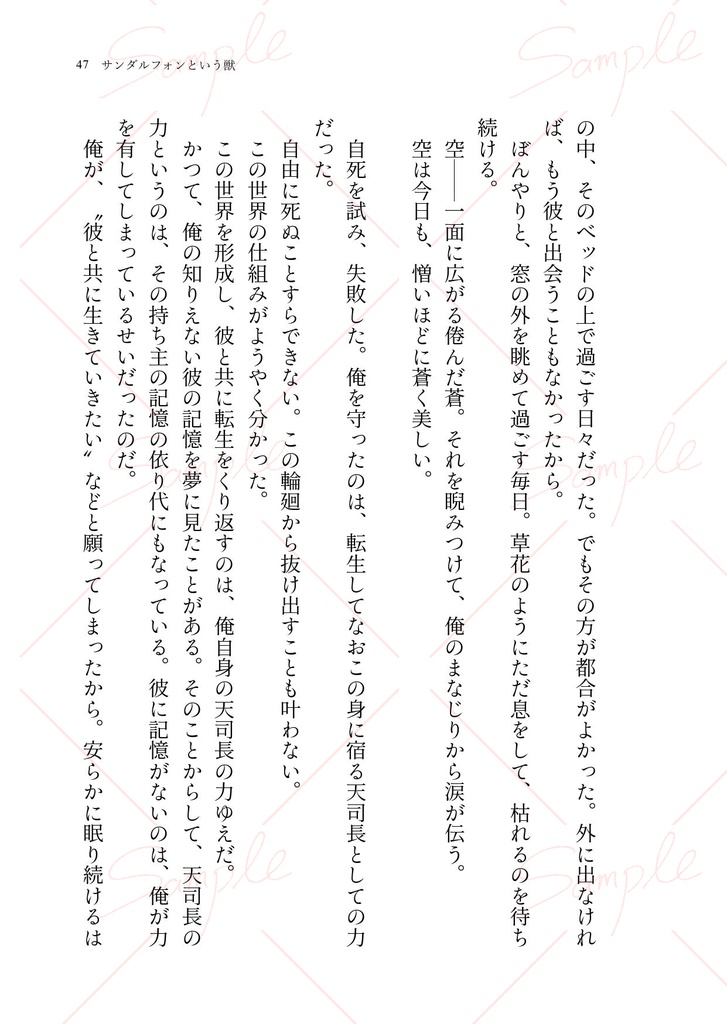 47 サンダルフォンという獣
の中、そのベッドの上で過ごす日々だった。でもその方が都合がよかった。外に出なけれ
ば、もう彼と出会うこともなかったから。
ぼんやりと、窓の外を眺めて過ごす毎日。草花のようにただ息をして、枯れるのを待ち
続ける。
空――一面に広がる倦んだ蒼。それを睨みつけて、俺のまなじりから涙が伝う。
空は今日も、憎いほどに蒼く美しい。
自死を試み、失敗した。俺を守ったのは、転生してなおこの身に宿る天司長としての力
だった。
自由に死ぬことすらできない。この輪廻から抜け出すことも叶わない。
この世界の仕組みがようやく分かった。
この世界を形成し、彼と共に転生をくり返すのは、俺自身の天司長の力ゆえだ。
かつて、俺の知りえない彼の記憶を夢に見たことがある。そのことからして、天司長の
力というのは、その持ち主の記憶の依り代にもなっている。彼に記憶がないのは、俺が力
を有してしまっているせいだったのだ。
俺が、〝彼と共に生きていきたい〟などと願ってしまったから。安らかに眠り続けるは
Sample
Sample
Sample
Sample
Sample
Sample